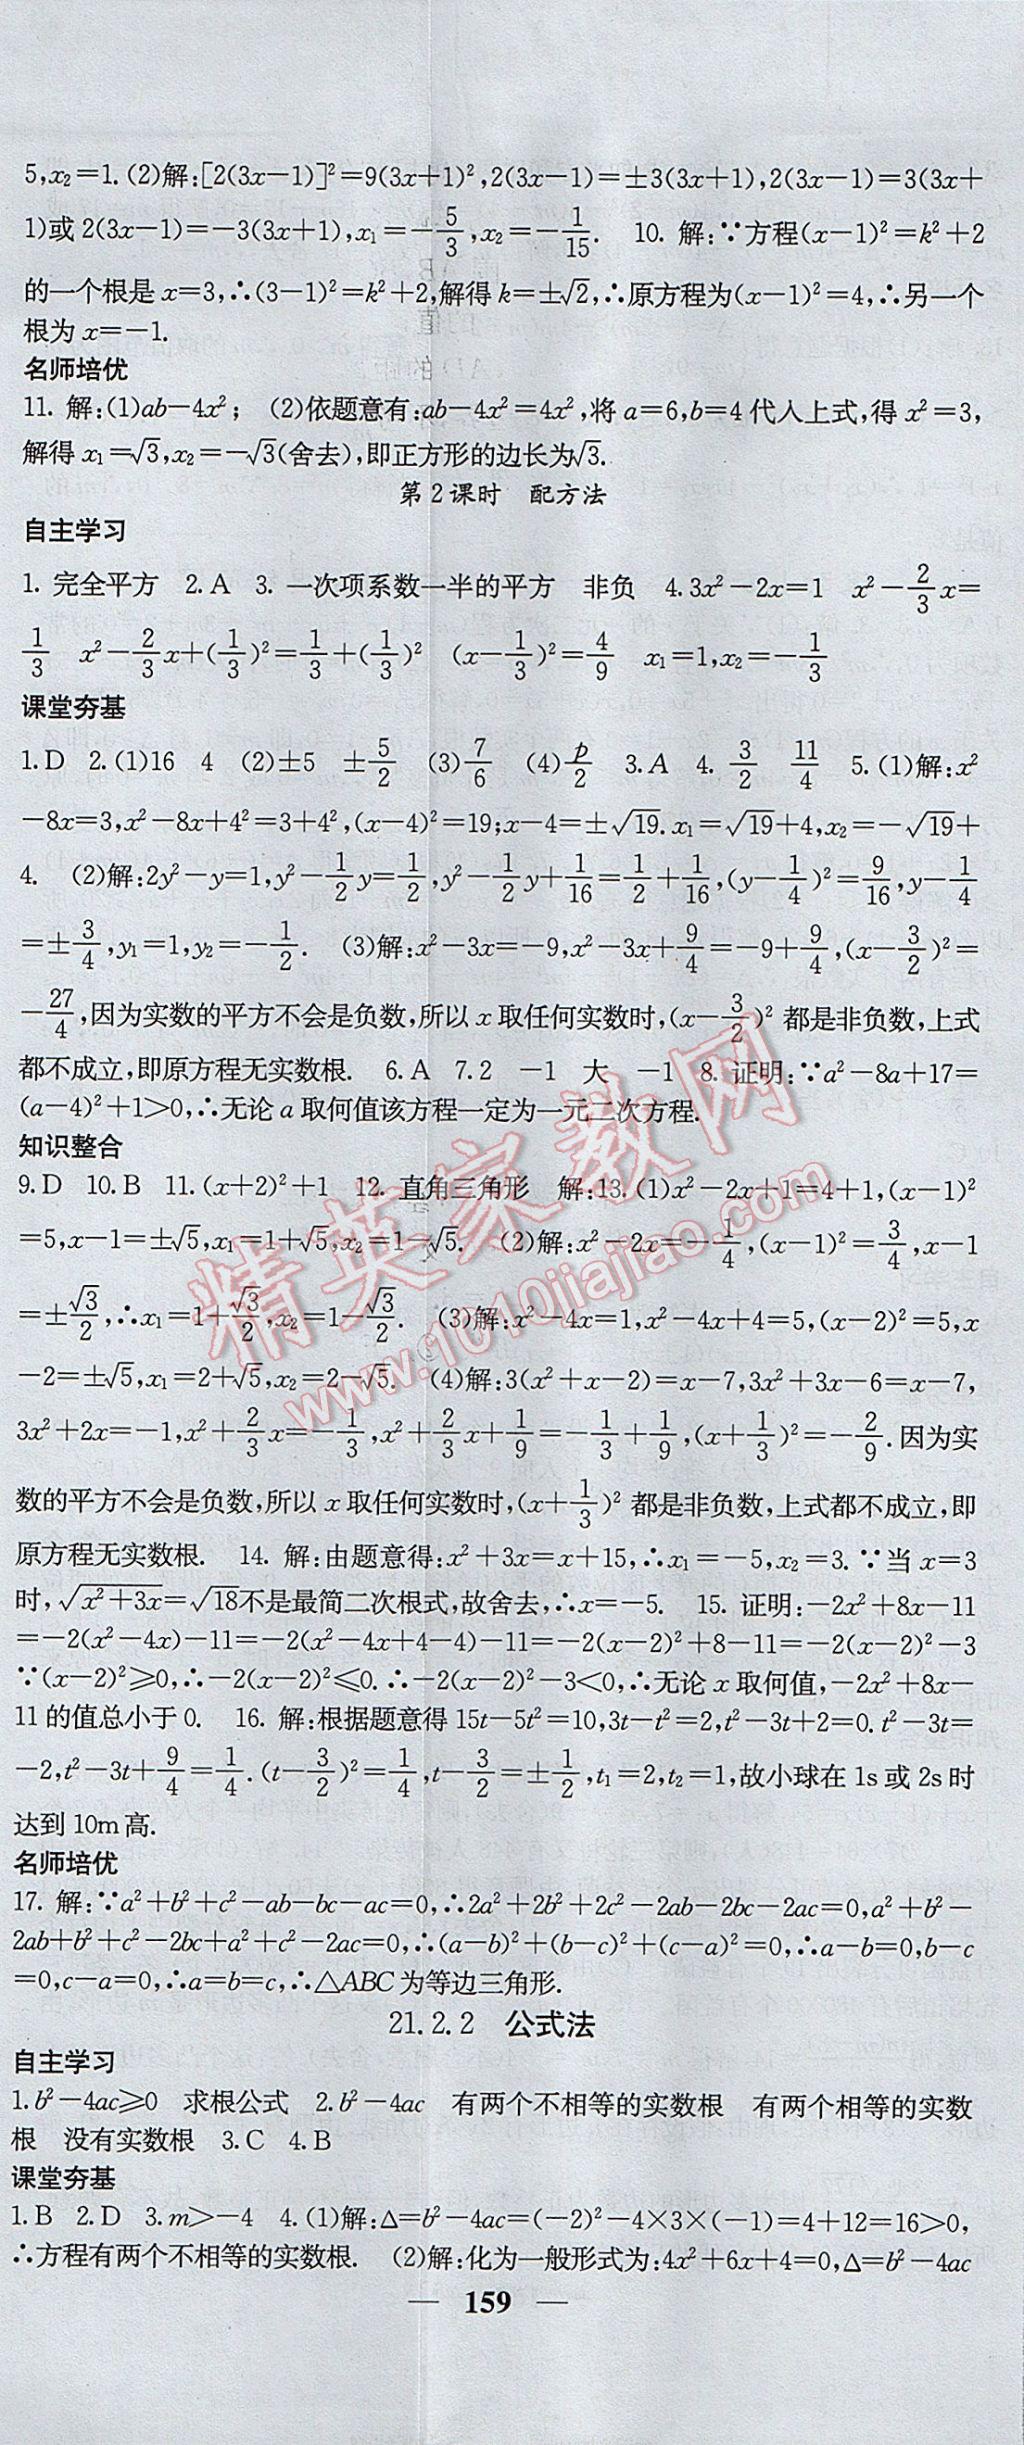 5,x₂=1. (2)解:[2(3x-1)]²=9(3x+1)²,2(3x-1)=±3(3x+1),2(3x-1)=3(3x+
1)或2(3x-1)=-3(3x+1),x₁=-5/3,x₂=-1/15. 10. 解:∵方程(x-1)²=k²+2
的一个根是x=3,∴(3-1)²=k²+2,解得k=±√2,∴原方程为(x-1)²=4,∴另一个
根为x=-1.
名师培优
11. 解:(1)ab-4x²; (2)依题意有:ab-4x²=4x²,将a=6,b=4代入上式,得x²=3,
解得x₁=√3,x₂=-√3(舍去),即正方形的边长为√3.
第2课时 配方法
自主学习
1. 完全平方 2.A 3. 一次项系数一半的平方 非负 4.3x²-2x=1 x²-2/3x=
1/3 x²-2/3x+(1/3)²=1/3+(1/3)² (x-1/3)²=4/9 x₁=1,x₂=-1/3
课堂夯基
1.D 2.(1)16 4 (2)±5 ±5/2 (3)7/6 (4)p/2 3.A 4. 3/2 11/4 5.(1)解:x²
-8x=3,x²-8x+4²=3+4²,(x-4)²=19;x-4=±√19.x₁=√19+4,x₂=-√19+
4. (2)解:2y²-y=1,y²-1/2y=1/2,y²-1/2y+1/16=1/2+1/16,(y-1/4)²=9/16,y-1/4
=±3/4,y₁=1,y₂=-1/2. (3)解:x²-3x=-9,x²-3x+9/4=-9+9/4,(x-3/2)²=
-27/4,因为实数的平方不会是负数,所以x取任何实数时,(x-3/2)²都是非负数,上式
都不成立,即原方程无实数根. 6.A 7.2 -1 大 -1 8. 证明:∵a²-8a+17=
(a-4)²+1>0,∴无论a取何值该方程一定为一元二次方程.
知识整合
9.D 10.B 11.(x+2)²+1 12. 直角三角形 解:13.(1)x²-2x+1=4+1,(x-1)²
=5,x-1=±√5,x₁=1+√5,x₂=1-√5. (2)解:x²-2x=-1/4,(x-1)²=3/4,x-1
=±√3/2,∴x₁=1+√3/2,x₂=1-√3/2. (3)解:x²-4x=1,x²-4x+4=5,(x-2)²=5,x
-2=±√5,x₁=2+√5,x₂=2-√5. (4)解:3(x²+x-2)=x-7,3x²+3x-6=x-7,
3x²+2x=-1,x²+2/3x=-1/3,x²+2/3x+1/9=-1/3+1/9,(x+1/3)²=-2/9.因为实
数的平方不会是负数,所以x取任何实数时,(x+1/3)²都是非负数,上式都不成立,即
原方程无实数根. 14. 解:由题意得:x²+3x=x+15,∴x₁=-5,x₂=3.∵当x=3
时,√(x²+3x)=√18不是最简二次根式,故舍去,∴x=-5. 15. 证明:-2x²+8x-11
=-2(x²-4x)-11=-2(x²-4x+4-4)-11=-2(x-2)²+8-11=-2(x-2)²-3
∵(x-2)²≥0,∴-2(x-2)²≤0.∴-2(x-2)²-3<0,∴无论x取何值,-2x²+8x-
11的值总小于0. 16. 解:根据题意得15t-5t²=10,3t-t²=2,t²-3t+2=0.t²-3t=
-2,t²-3t+9/4=1/4.(t-3/2)²=1/4,t-3/2=±1/2,t₁=2,t₂=1,故小球在1s或2s时
达到10m高.
名师培优
17. 解:∵a²+b²+c²-ab-bc-ac=0,∴2a²+2b²+2c²-2ab-2bc-2ac=0,a²+b²-
2ab+b²+c²-2bc+a²+c²-2ac=0,∴(a-b)²+(b-c)²+(c-a)²=0,∴a-b=0,b-c
=0,c-a=0,∴a=b=c,∴△ABC为等边三角形.
21.2.2 公式法
自主学习
1.b²-4ac≥0 求根公式 2.b²-4ac 有两个不相等的实数根 有两个相等的实数
根 没有实数根 3.C 4.B
课堂夯基
1.B 2.D 3.m>-4 4.(1)解:Δ=b²-4ac=(-2)²-4×3×(-1)=4+12=16>0,
∴方程有两个不相等的实数根. (2)解:化为一般形式为:4x²+6x+4=0,Δ=b²-4ac
— 159 —
精英家教网
www.1010jiajiao.com